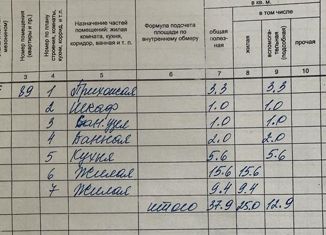 в кв. м.
в том числе
Номер помещения (квартиры и пр.)
Номер по плану строения, комнаты, кухни, корид. и т.п.
Назначение частей помещений: жилая комната, кухня, коридор, ванная и т. п.
Формула подсчета площади по внутреннему обмеру
общая полезная
жилая
вспомогательная (подсобная)
прочая
3 4 5 6 7 8 9 10
89 1 Прихожая 3.3 3.3
2 Шкаф 1.0 1.0
3 Санузел 1.0 1.0
4 Ванная 2.0 2.0
5 Кухня 5.6 5.6
6 Жилая 15.6 15.6
7 Жилая 9.4 9.4
итого 37.9 25.0 12.9